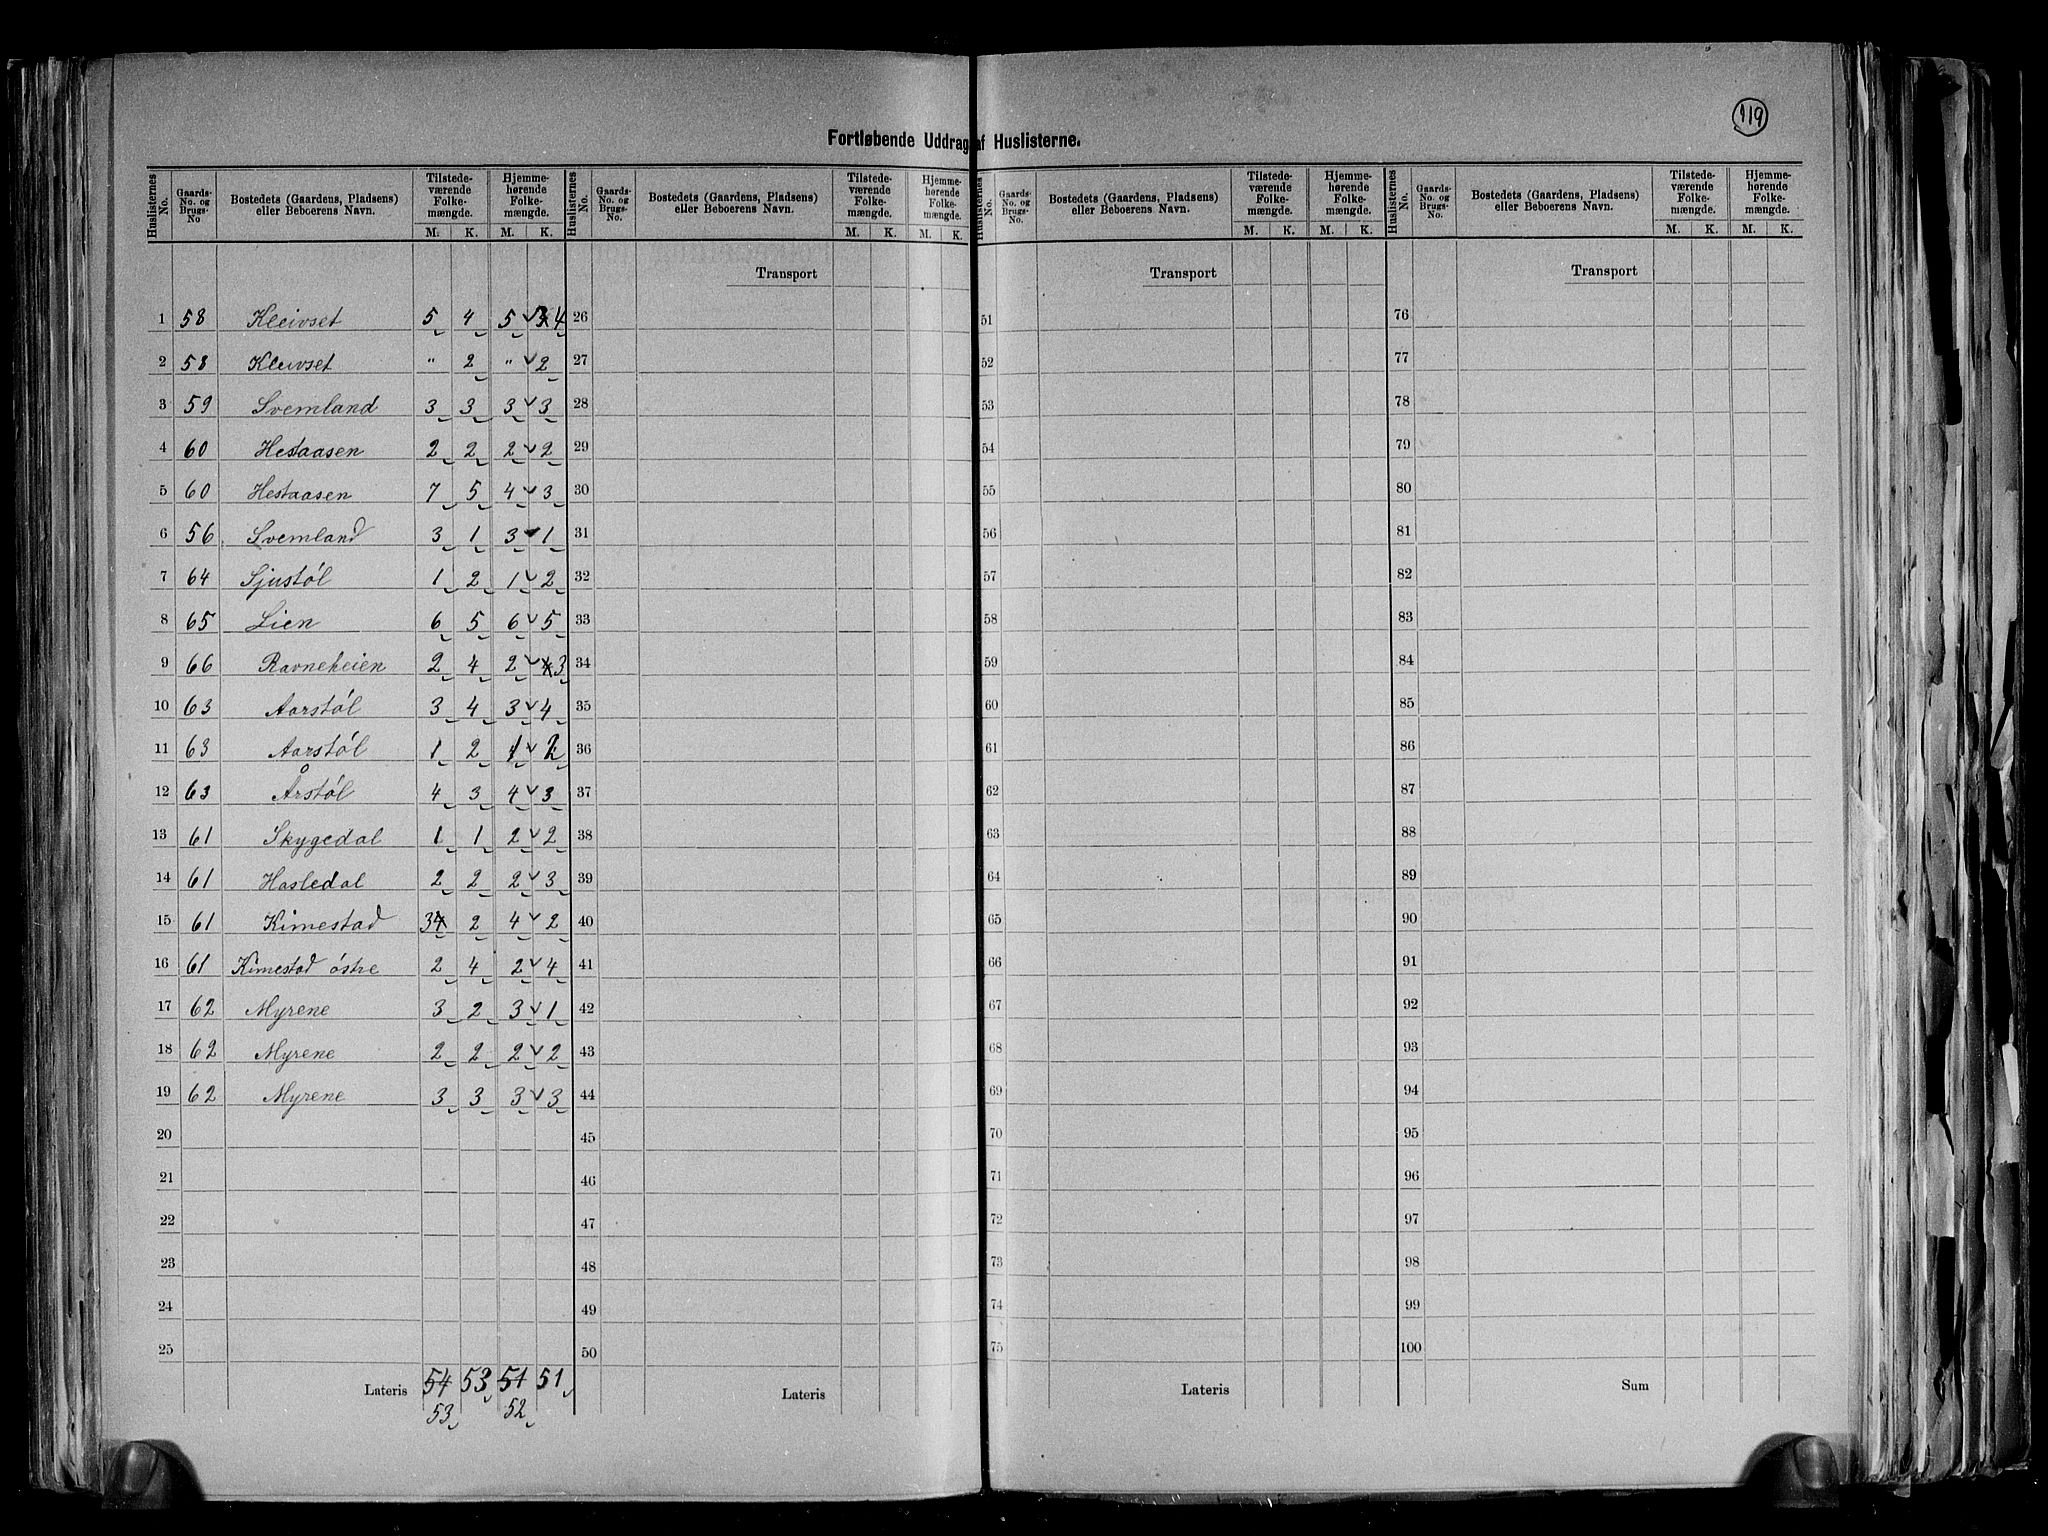 119
Fortløbende Uddrag af Huslisterne.
Huslisternes No. | Gaards-No. og Brugs-No | Bostedets (Gaardens, Pladsens) eller Beboerens Navn. | Tilstedeværende Folkemængde. M. K. | Hjemmehørende Folkemængde. M. K.
Huslisternes No. | Gaards-No. og Brugs-No. | Bostedets (Gaardens, Pladsens) eller Beboerens Navn. | Tilstedeværende Folkemængde. M. K. | Hjemmehørende Folkemængde. M. K.
Huslisternes No. | Gaards-No. og Brugs-No. | Bostedets (Gaardens, Pladsens) eller Beboerens Navn. | Tilstedeværende Folkemængde. M. K. | Hjemmehørende Folkemængde. M. K.
Huslisternes No. | Gaards-No. og Brugs-No. | Bostedets (Gaardens, Pladsens) eller Beboerens Navn. | Tilstedeværende Folkemængde. M. K. | Hjemmehørende Folkemængde. M. K.
Transport Transport Transport
1 58 Kleivset 5 4 5 3 4 26 51 76
2 58 Kleivset " 2 " 2 27 52 77
3 59 Svemland 3 3 3 3 28 53 78
4 60 Hestaasen 2 2 2 2 29 54 79
5 60 Hestaasen 7 5 4 3 30 55 80
6 56 Svemland 3 1 3 1 31 56 81
7 64 Sjustøl 1 2 1 2 32 57 82
8 65 Lien 6 5 6 5 33 58 83
9 66 Ravneheien 2 4 2 4 3 34 59 84
10 63 Aarstøl 3 4 3 4 35 60 85
11 63 Aarstøl 1 2 1 2 36 61 86
12 63 Årstøl 4 3 4 3 37 62 87
13 61 Skygedal 1 1 2 2 38 63 88
14 61 Hasledal 2 2 2 3 39 64 89
15 61 Kimestad 3 4 2 4 2 40 65 90
16 61 Kimestad østre 2 4 2 4 41 66 91
17 62 Myrene 3 2 3 1 42 67 92
18 62 Myrene 2 2 2 2 43 68 93
19 62 Myrene 3 3 3 3 44 69 94
20 45 70 95
21 46 71 96
22 47 72 97
23 48 73 98
24 49 74 99
25 50 75 100
Lateris 54 53 51 51 Lateris Lateris Sum
53 52